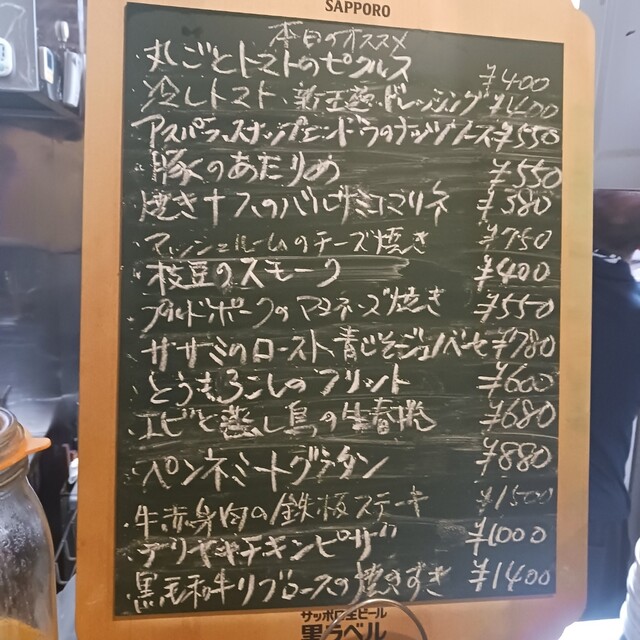 SAPPORO
本日のオススメ
・丸ごとトマトのピクルス ¥400
・冷しトマト、新玉葱・ドレッシング ¥400
・アスパラ、スナップエンドウのナッツソース ¥550
・豚のあたりめ ¥550
・焼きナスのバルサミコマリネ ¥380
・マッシュルームのチーズ焼き ¥750
・枝豆のスモーク ¥400
・プルドポークのマヨネーズ焼き ¥550
・ササミのロースト青じそジェノベーゼ ¥780
・とうもろこしのフリット ¥600
・エビと蒸し鳥の生春巻 ¥680
・ペンネミートグラタン ¥880
・牛赤身肉の鉄板ステーキ ¥1500
・テリヤキチキンピザ ¥1000
・黒毛和牛リブロースの焼きすき ¥1400
サッポロ生ビール
黒ラベル